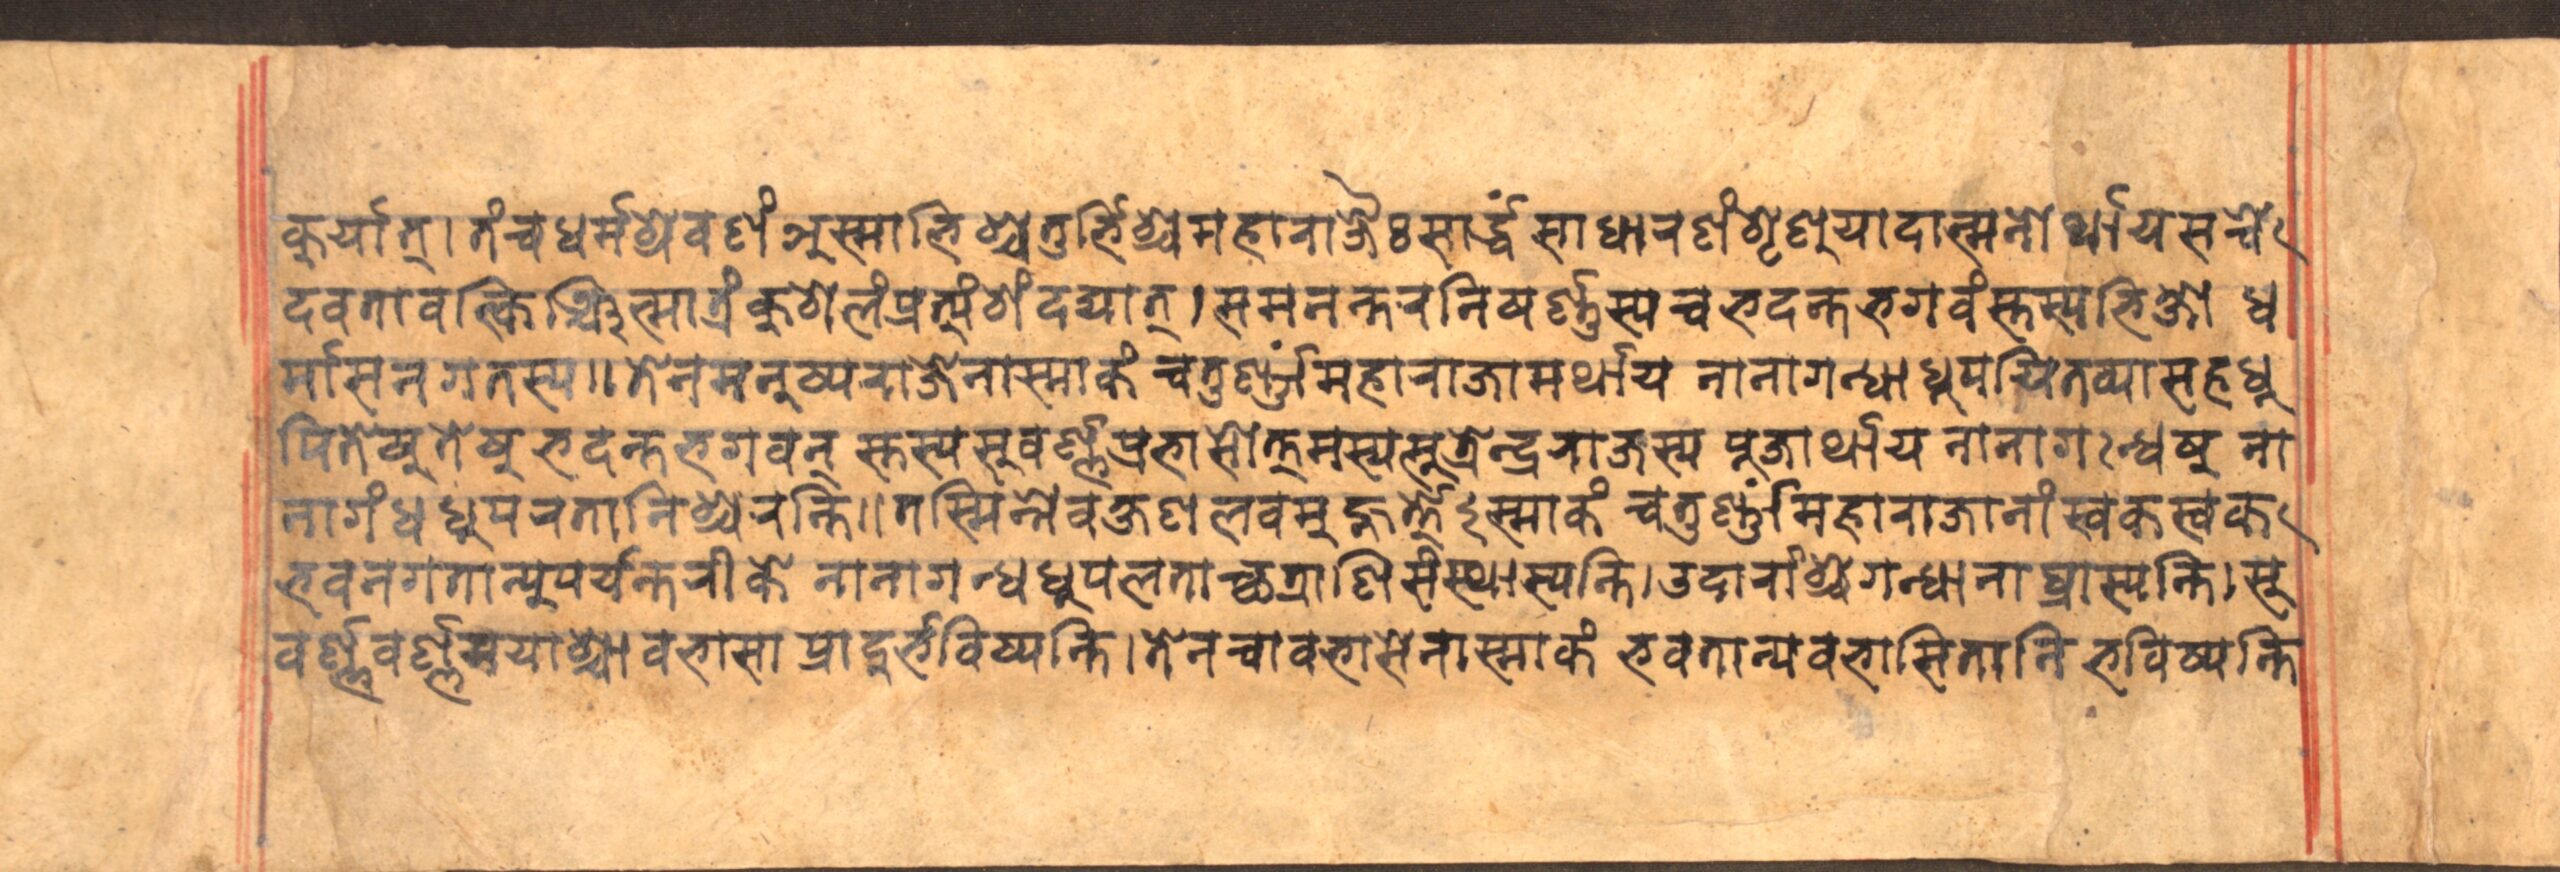 कुर्यात् । तंच धर्मश्रवणं अस्माभिश्चतुर्भिश्च महाराजैः सार्द्धं साधारणं शृणुयादात्मनोर्थाय सर्व
देवतावत्किञ्चित्मात्रं कुशलं प्रत्यंशं दद्यात् । समनन्तरनिषर्ण्णस्य च भदन्त भगवंस्तस्य भिक्षो ध
र्मासनगतस्य ॥ तेन मनुष्यराजेनास्माकं चतुर्ण्णां महाराजामर्थाय नानागन्धा धूपयितव्या सहधू
पितेषु तेषु भदन्त भगवन् स्तस्य सुवर्ण्णप्रभासोत्तमस्य सूत्रेन्द्रराजस्य पूजार्थाय नानागन्धेषु ना
नागंधधूपरता निश्चरन्ति ॥ तस्मिन्नेव क्षणलवमुहूर्त्ते ऽस्माकं चतुर्ण्णां महाराजानां स्वकस्वक
भवनगतान्युपर्यन्तरीक्षे नानागन्धधूपलताच्छत्राणि संस्थास्यन्ति । उदारांश्च गन्धानाघ्रास्यन्ति । सु
वर्ण्णवर्ण्णमयाश्चावभासा प्रादुर्भविष्यन्ति । तेन चावभासेनास्माकं भवतान्यवभासितानि भविष्यन्ति